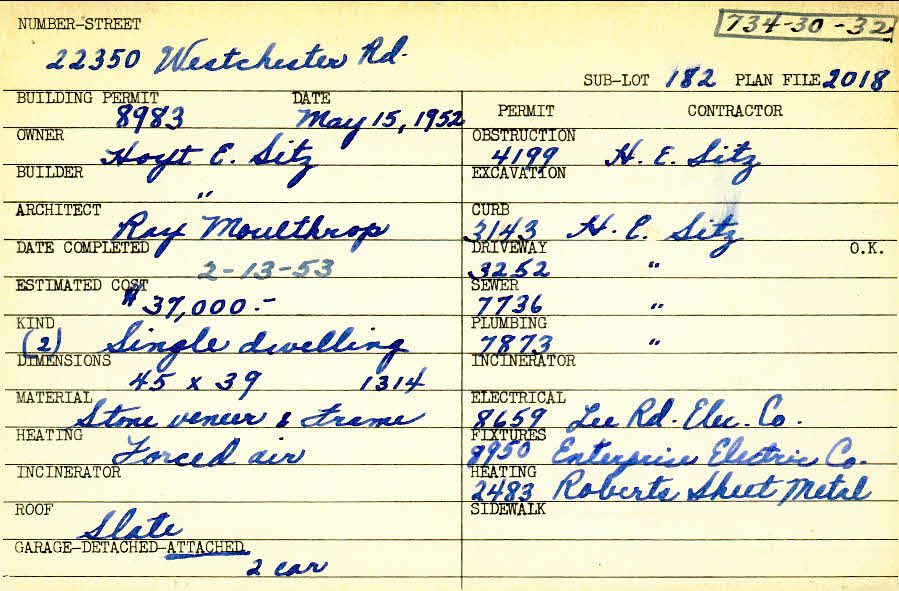 NUMBER-STREET
734-30-32
22350 Westchester Rd.
SUB-LOT 182 PLAN FILE 2018
BUILDING PERMIT DATE
8983 May 15, 1952
OWNER
Hoyt E. Sitz
BUILDER
"
ARCHITECT
Ray Moulthrop
DATE COMPLETED
2-13-53
ESTIMATED COST
$37,000.-
KIND
(2) Single dwelling
DIMENSIONS
45 x 39 1314
MATERIAL
Stone veneer & Frame
HEATING
Forced air
INCINERATOR
ROOF
Slate
GARAGE-DETACHED-ATTACHED
2 car
PERMIT CONTRACTOR
OBSTRUCTION
4199 H. E. Sitz
EXCAVATION
CURB
3143 H. E. Sitz
DRIVEWAY O.K.
3252 "
SEWER
7736 "
PLUMBING
7873 "
INCINERATOR
ELECTRICAL
8659 Lee Rd. Elec. Co.
FIXTURES
8950 Enterprise Electric Co.
HEATING
2483 Roberts Sheet Metal
SIDEWALK